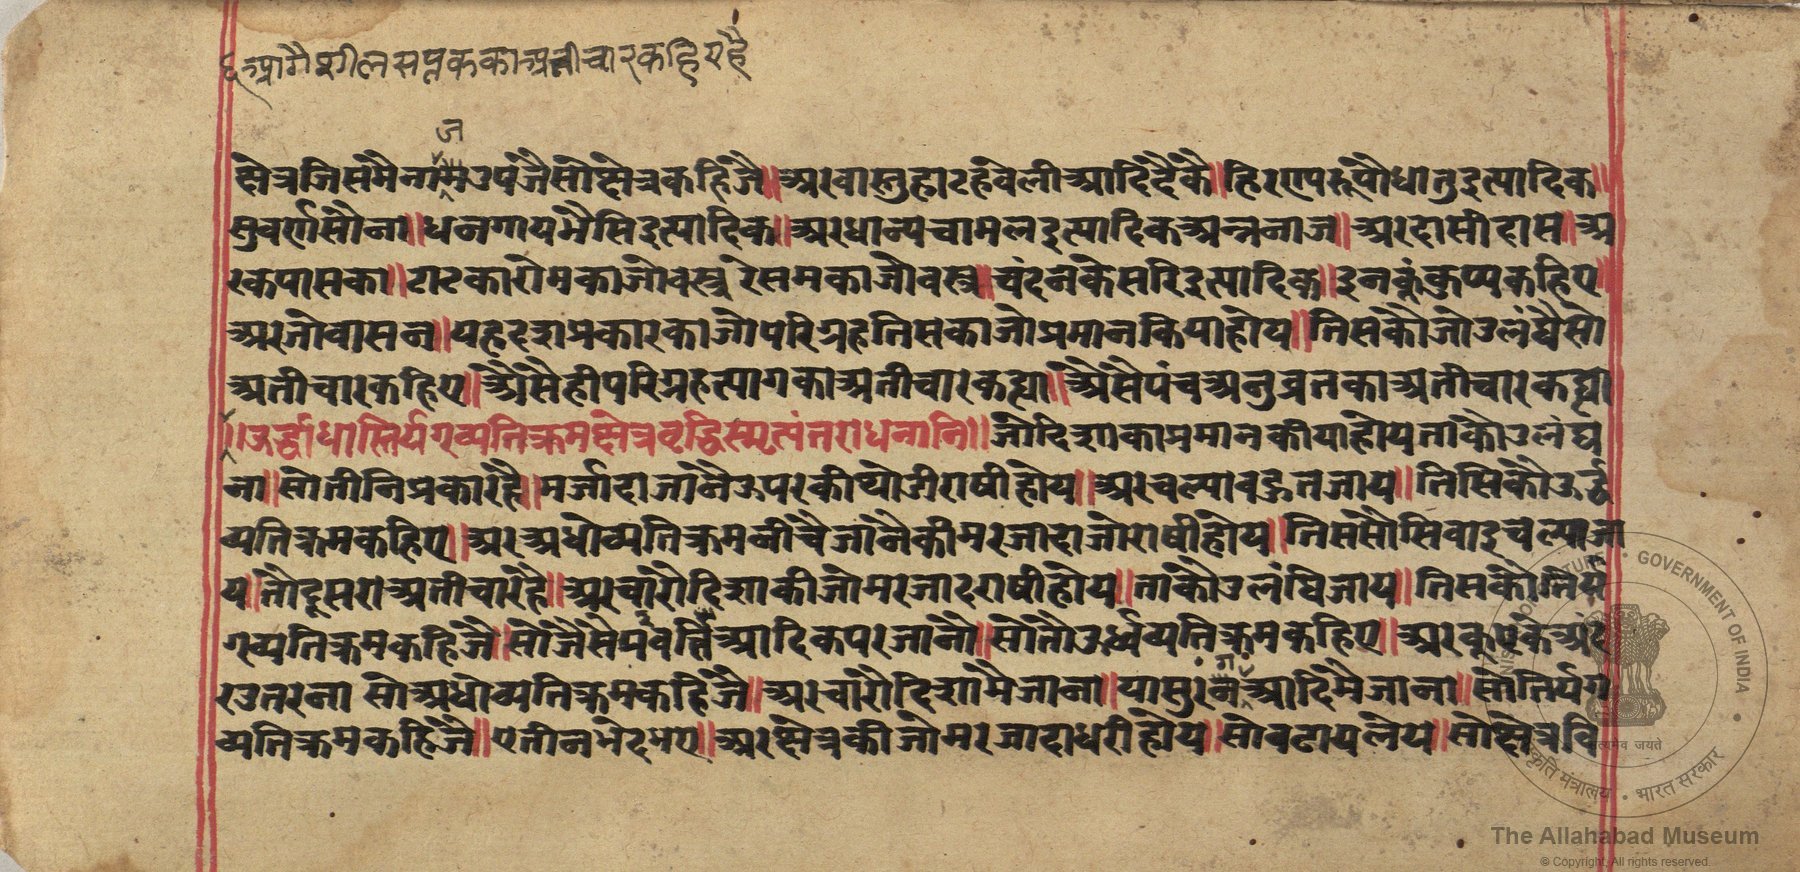 आगैशीलसप्तककाअतीचारकहिएहै
ज
क्षेत्रजिसंमैनाउपंजैसोक्षेत्रकहिंजै॥अरवास्तुहाटहंवेलीआदिंदैकै॥हिरण्यपरूपोधातुइत्यादिक॥
सुवर्णसोना॥धनगायभैसिइत्यादिक॥अरधान्यचामलइत्यादिकअन्ननाज॥अरदासीदास॥अ
रकपासका॥टाटकारोमकाजोवस्त्ररेसमकाजोवस्त्र॥चंदनकेसरिइत्यादिक॥इनकूंकुप्यकहिए॥
अरजोवासन॥यहदशप्रकारकाजोपरिग्रहतिसकाजोप्रमानकियाहोय॥तिसकौजोउलंघैसो
अतीचारकहिए॥अैसैहीपरिग्रहत्यागकाअतीचारकह्या॥अैसैपंचअनुव्रतकाअतीचारकह्या
॥ऊर्द्ध्वाधास्तिर्यगव्यतिक्रमक्षेत्रवृद्धिस्मृत्यंतराधनानि॥जोदिशाकाप्रमानकीयाहोयतांकौउलंघ
ना॥सोतीनिप्रकारहै॥मर्जादाजांनैऊपरकीथोजीराषीहोय॥अरचल्याबहुतजाय॥तिसिकौऊर्द्ध
व्यतिक्रमकहिए॥अरअधोव्यतिक्रमनीचैजांनैकीमरजादाजोराषीहोय॥तिससोसिवाइचल्याजा
य॥तोदूसराअतीचारहै॥अरचारोदिशाकीजोमरजादराषीहोय॥तांकौउलंघिजाय॥तिसकौतिर्य
गव्यतिक्रमकहिंजै॥सोजैसैपर्वआदिकपरजांनौ॥सोतौउर्ध्वव्यतिक्रमकहिए॥अरकूपकेअंद
रउतरना सोअधोव्यतिक्रमकहिंजै॥अरचारौदिशामैजाना॥आदिमैजाना॥सोतिर्यग
व्यतिक्रमकहिंजै॥एतीनभेदभए॥अरक्षेत्रकीजोमरजादाधरीहोय॥सोबटायलेय॥सोक्षेत्रवि
GOVERNMENT OF INDIA
सत्यमेव जयते
संस्कृति मंत्रालय • भारत सरकार
The Allahabad Museum
© Copyright, All rights reserved.